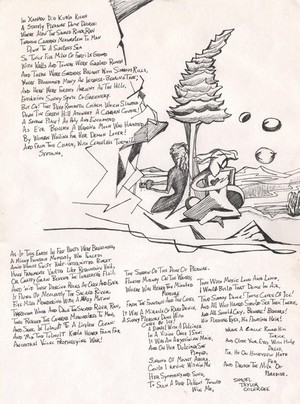 In Xanadu Did Kubla Khan
A Stately Pleasure Dome Decree:
Where Alph The Sacred River, Ran
Through Caverns Measureless To Man
Down To A Sunless Sea
So Twice Five Miles Of Fertile Ground
With Walls And Towers Were Girdled Round
And There Were Gardens Bright With Sinuous Rills,
Where Blossomed Many An Incense-Bearing Tree;
And Here Were Forests Ancient As The Hills,
Enfolding Sunny Spots Of Greenery.
But Oh! That Deep Romantic Chasm Which Slanted
Down The Green Hill Athwart A Cedarn Cover!
A Savage Place! As Holy And Enchanted
As E'er Beneath A Waning Moon Was Haunted
By Woman Wailing For Her Demon Lover!
And From This Chasm, With Ceaseless Turmoil
Seething,
As If This Earth In Fast Pants Were Breathing,
A Mighty Fountain Momently Was Forced
Amid Whose Swift Half-Intermitted Burst
Huge Fragments Vaulted Like Rebounding Hail,
Or Chaffy Grain Beneath The Thresher's Flail
And 'Mid These Dancing Rocks At Once And Ever
It Flung Up Momently The Sacred River.
Five Miles Meandering With A Mazy Motion
Through Wood And Dale The Sacred River Ran,
Then Reached The Caverns Measureless To Man,
And Sank In Tumult To A Lifeless Ocean
And 'Mid This Tumult Kubla Heard From Far
Ancestral Voices Prophesying War!
The Shadow Of The Dome Of Pleasure
Floated Midway On The Waves;
Where Was Heard The Mingled
Measure
From The Fountain And The Caves
It Was A Miracle Of Rare Device,
A Sunny Pleasure Dome With
Caves Of Ice!
A Damsel With A Dulcimer
In A Vision Once I Saw:
It Was An Abyssinian Maid,
And On Her Dulcimer She
Played,
Singing Of Mount Abora,
Could I Revive Within Me
Her Symphony And Song,
To Such A Deep Delight 'Twould
Win Me,
That With Music Loud And Long,
I Would Build That Dome In Air,
That Sunny Dome! Those Caves Of Ice!
And All Who Heard Should See Them There,
And All Should Cry, Beware! Beware!
His Flashing Eyes, His Floating Hair!
Weave A Circle Round Him
And Close Your Eyes With Holy
Dread,
For He On Honeydew Hath
Fed,
And Drunk The Milk Of
Paradise.
Samuel
Taylor
Coleridge